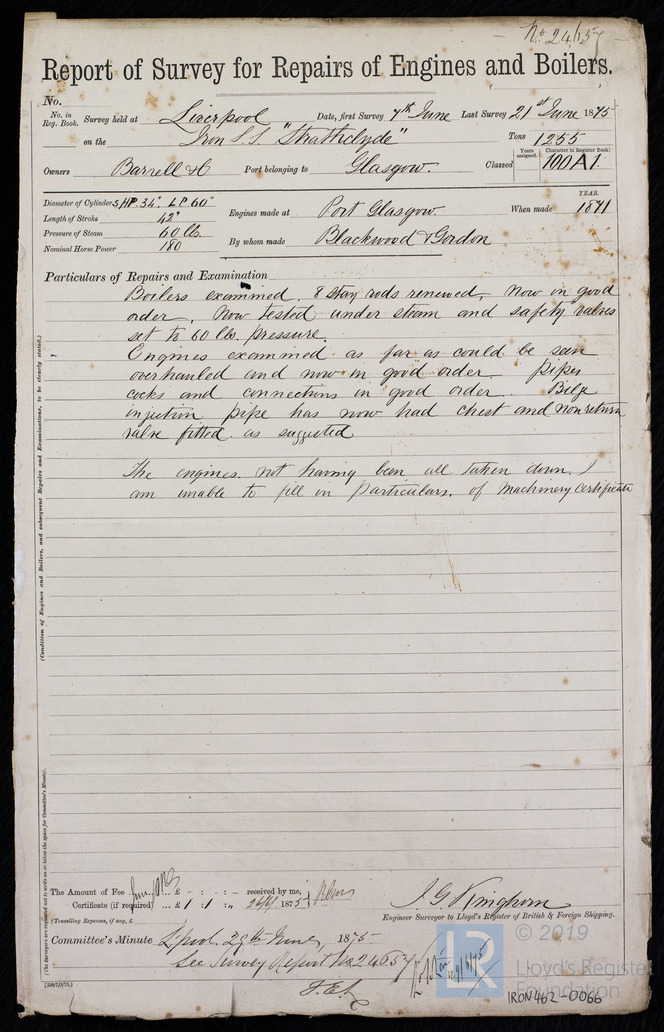 No. 24657
Report of Survey for Repairs of Engines and Boilers.
No.
No. in Reg. Book. Survey held at Liverpool Date, first Survey 7th June Last Survey 21st June 1875
on the Iron S.S. "Strathclyde" Tons 1255
Years assigned. Character in Register Book.
Owners Burrell & Co Port belonging to Glasgow. Classed 100A1.
Diameter of Cylinders HP. 34". LP. 60" YEAR.
Length of Stroke 42" Engines made at Port Glasgow. When made 1871
Pressure of Steam 60 lb.
Nominal Horse Power 180 By whom made Blackwood & Gordon
Particulars of Repairs and Examination
Boilers examined, 8 stay rods renewed, now in good
order. Now tested under steam and safety valves
set to 60 lbs. pressure.
Engines examined as far as could be seen
overhauled and now in good order. pipes
cocks and connections in good order. Belge
injection pipe has now had chest and non return
valve fitted as suggested
The engines not having been all taken down, I
am unable to fill in particulars. of Machinery Certificate
(Condition of Engines and Boilers, and subsequent Repairs and Examinations, to be clearly stated.)
(The Surveyors are requested not to write on or below the space for Committee's Minute).
The Amount of Fee ... £ - : - : - received by me,
Certificate (if required) ... £ 1 : 1 : „ 26/6/ 1875
(Travelling Expenses, if any, £
J G Kinghorn
Engineer Surveyor to Lloyd's Register of British & Foreign Shipping.
Committee's Minute L'pool. 29th June, 1875.
See Survey Report No 24657
29/6/75
© 2019
LR
Lloyd's Register
Foundation
IRON462-0066